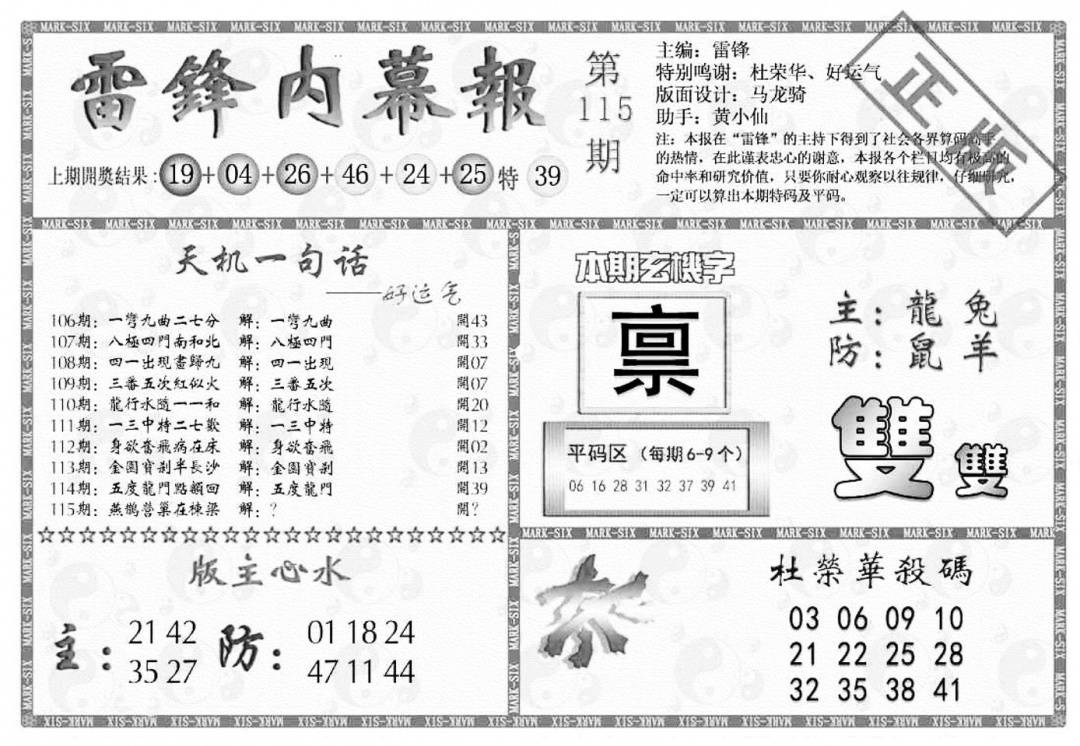 雷鋒内幕報
第
115
期
主编：雷锋
特别鸣谢：杜荣华、好运气
版面设计：马龙骑
助手：黄小仙
注：本报在“雷锋”的主持下得到了社会各界算码高手
的热情，在此谨表忠心的谢意，本报各个栏目均有极高的
命中率和研究价值，只要你耐心观察以往规律，仔细研究，
一定可以算出本期特码及平码。
正版
上期開獎结果：19+04+26+46+24+25特 39
天机一句话
——好运气
106期：一彎九曲二七分 解：一彎九曲 開43
107期：八極四門南和北 解：八極四門 開33
108期：四一出現畫歸九 解：四一出現 開07
109期：三番五次紅似火 解：三番五次 開07
110期：龍行水隨一一和 解：龍行水隨 開20
111期：一三中特二七歡 解：一三中特 開12
112期：身欲奮飛病在床 解：身欲奮飛 開02
113期：金圓寶剎半長沙 解：金圓寶剎 開13
114期：五度龍門點額回 解：五度龍門 開39
115期：燕鵲營巢在棟梁 解：？ 開？
☆☆☆☆☆☆☆☆☆☆☆☆☆☆☆☆☆☆☆☆☆☆☆☆
本期玄機字
禀
主：龍 兔
防：鼠 羊
雙 雙
平码区（每期6-9个）
06 16 28 31 32 37 39 41
版主心水
主：21 42
35 27
防：01 18 24
47 11 44
杀
杜榮華殺碼
03 06 09 10
21 22 25 28
32 35 38 41
MARK-SIX